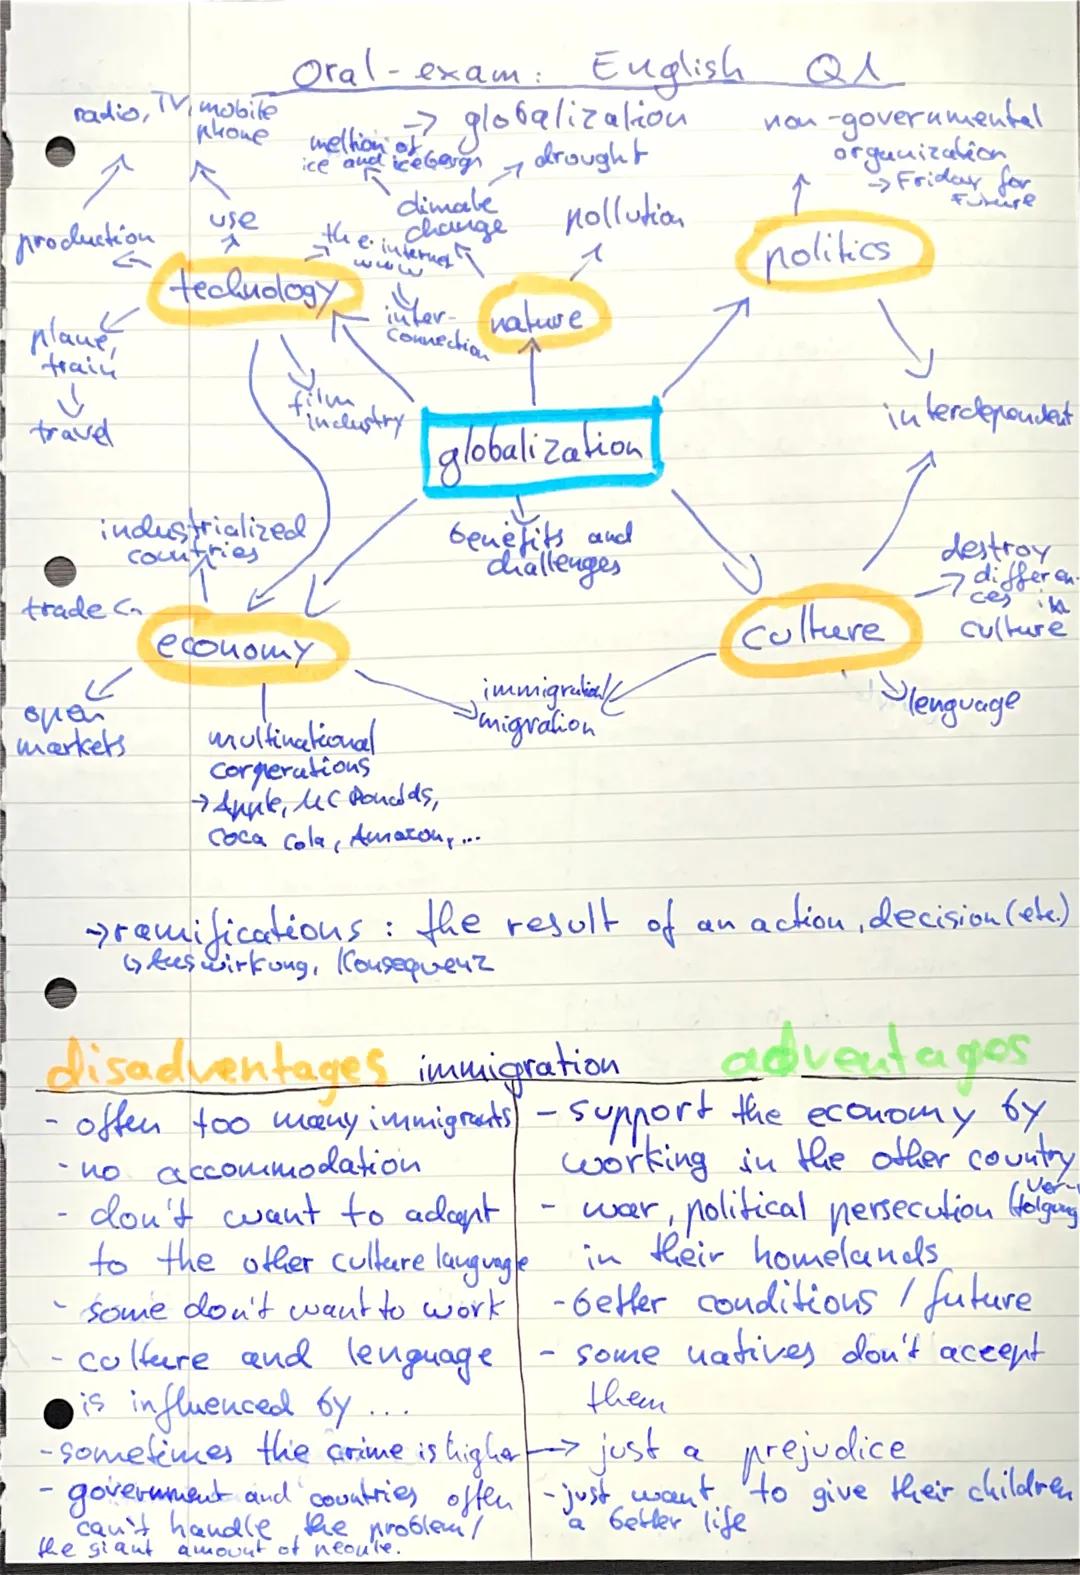 Oral-exam: English Q1
→ globalization
radio, TV, mobile
phone
production
use
technology
the internet
www
inter-
connection
plane,
train
travel
film
industry
meltion of
ice and icebergn
drought
climate
change
pollution
nature
non-governmental
organization
→ Friday for
Future
politics
interdependent
globalization
benefits and
challenges
industrialized
countries
trade
economy
open
markets
multinational
corperations
→ Apple, Mc Donalds,
Coca Cola, Amazon, ...
immigration/
migration
culture
destroy
differen-
ces in
culture
lenguage
→ ramifications : the result of an action, decision (etc.)
↳ Auswirkung, Konsequenz
disadventages immigration adventages
- often too many immigrants
- no accommodation
- don't want to adapt
to the other culture language
- some don't want to work
- culture and lenguage
is influenced by ...
- sometimes the crime is higher
- government and countries often
can't handle the problem/
the giant amount of people.
- support the economy by
working in the other country
- war, political persecution (Ver-
folgung
in their homelands
- better conditions / future
- some natives don't accept
them
→ just a prejudice
- just want to give their children
a better life